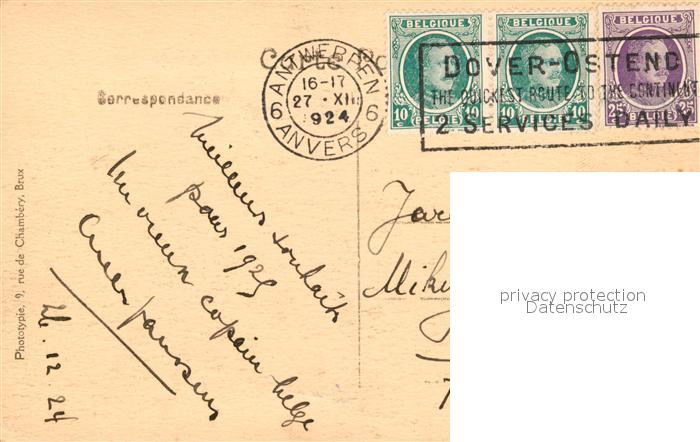 BELGIQUE BELGIQUE BELGIQUE
10c 10 10c 10 25c 25
BELGIË BELGIË BELGIË
DOVER-OSTEND
THE QUICKEST ROUTE TO THE CONTINENT
2 SERVICES DAILY
6 ANTWERPEN 6
16-17
27 · XII
1924
ANVERS
Correspondance
Meilleurs souhaits
pour 1925
Un vieux copain belge
Janssens
26.12.24
Phototypie, 9, rue de Chambéry, Brux
privacy protection
Datenschutz